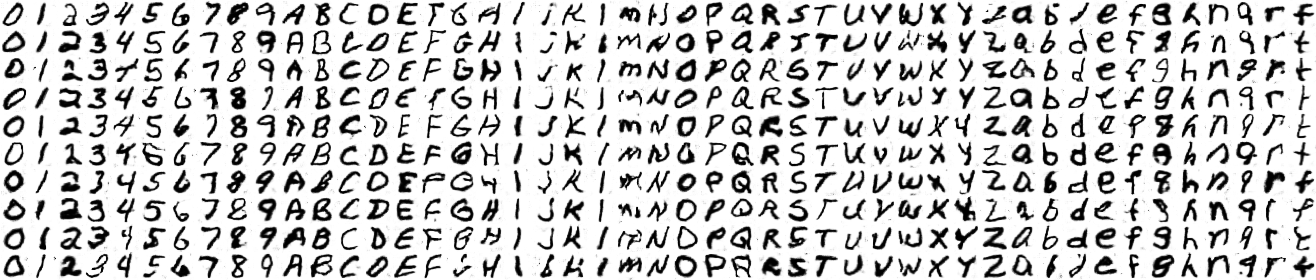 0 1 2 3 4 5 6 7 8 9 A B C D E F G H I j K l m N O P Q R S T U V W X Y Z a b d e f g h n q r t
0 1 2 3 4 5 6 7 8 9 A B C D E F G H I j K l m N O P Q R S T U V W X Y Z a b d e f g h n q r t
0 1 2 3 4 5 6 7 8 9 A B C D E F G H I j K l m N O P Q R S T U V W X Y Z a b d e f g h n q r t
0 1 2 3 4 5 6 7 8 9 A B C D E F G H I j K l m N O P Q R S T U V W X Y Z a b d e f g h n q r t
0 1 2 3 4 5 6 7 8 9 A B C D E F G H I j K l m N O P Q R S T U V W X Y Z a b d e f g h n q r t
0 1 2 3 4 5 6 7 8 9 A B C D E F G H I j K l m N O P Q R S T U V W X Y Z a b d e f g h n q r t
0 1 2 3 4 5 6 7 8 9 A B C D E F G H I j K l m N O P Q R S T U V W X Y Z a b d e f g h n q r t
0 1 2 3 4 5 6 7 8 9 A B C D E F G H I j K l m N O P Q R S T U V W X Y Z a b d e f g h n q r t
0 1 2 3 4 5 6 7 8 9 A B C D E F G H I j K l m N O P Q R S T U V W X Y Z a b d e f g h n q r t
0 1 2 3 4 5 6 7 8 9 A B C D E F G H I j K l m N O P Q R S T U V W X Y Z a b d e f g h n q r t